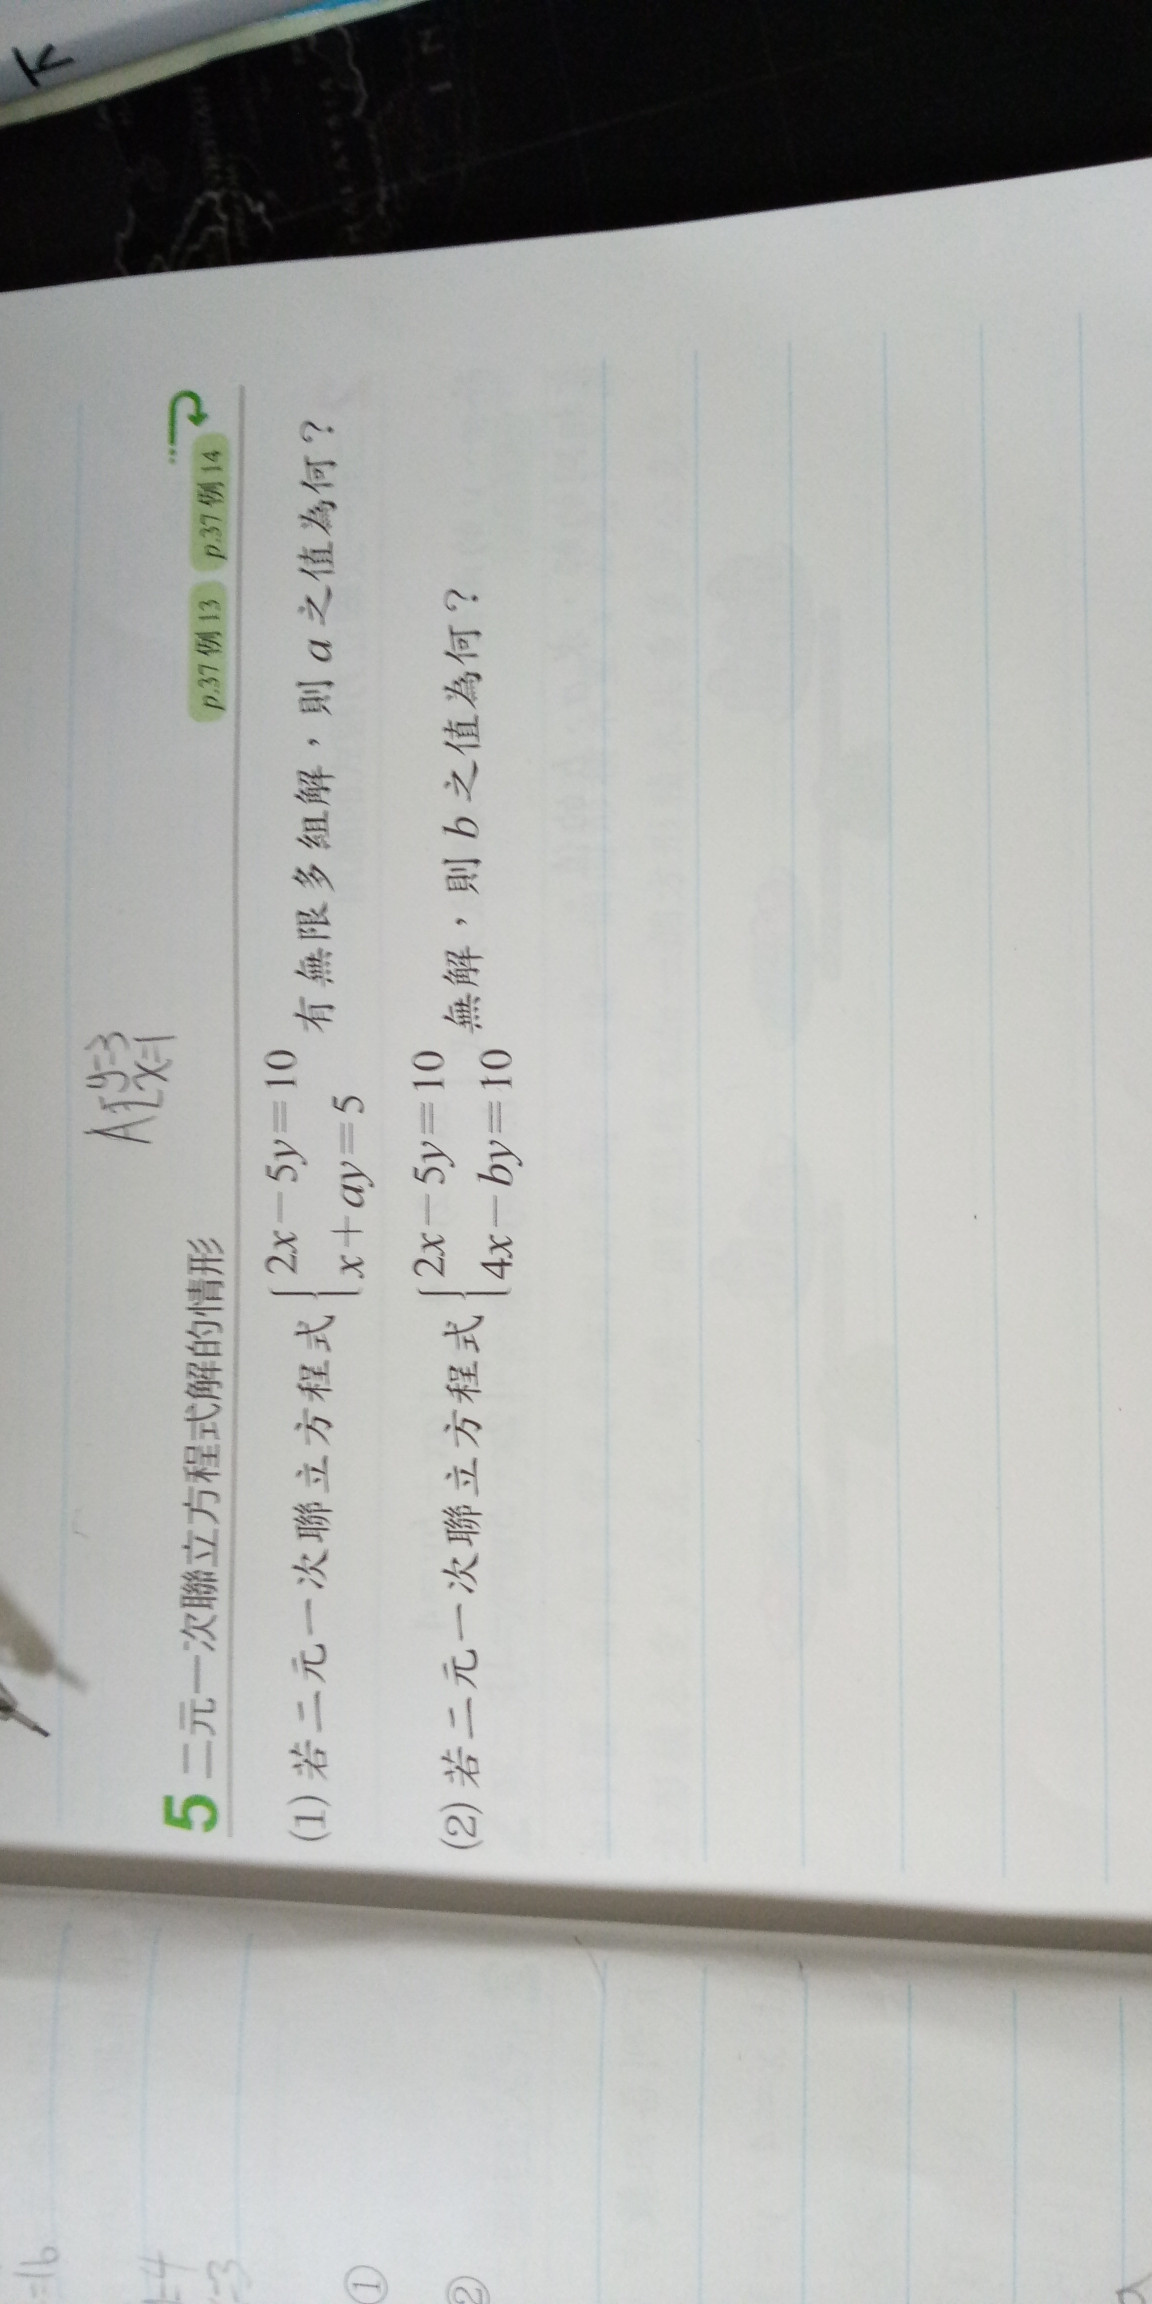 A{y=3
x=1
5 二元一次聯立方程式解的情形 p.37 例 13 p.37 例 14
(1) 若二元一次聯立方程式{2x－5y＝10
x＋ay＝5 有無限多組解，則 a 之值為何？
(2) 若二元一次聯立方程式{2x－5y＝10
4x－by＝10 無解，則 b 之值為何？
=16
=4
=3
①
②